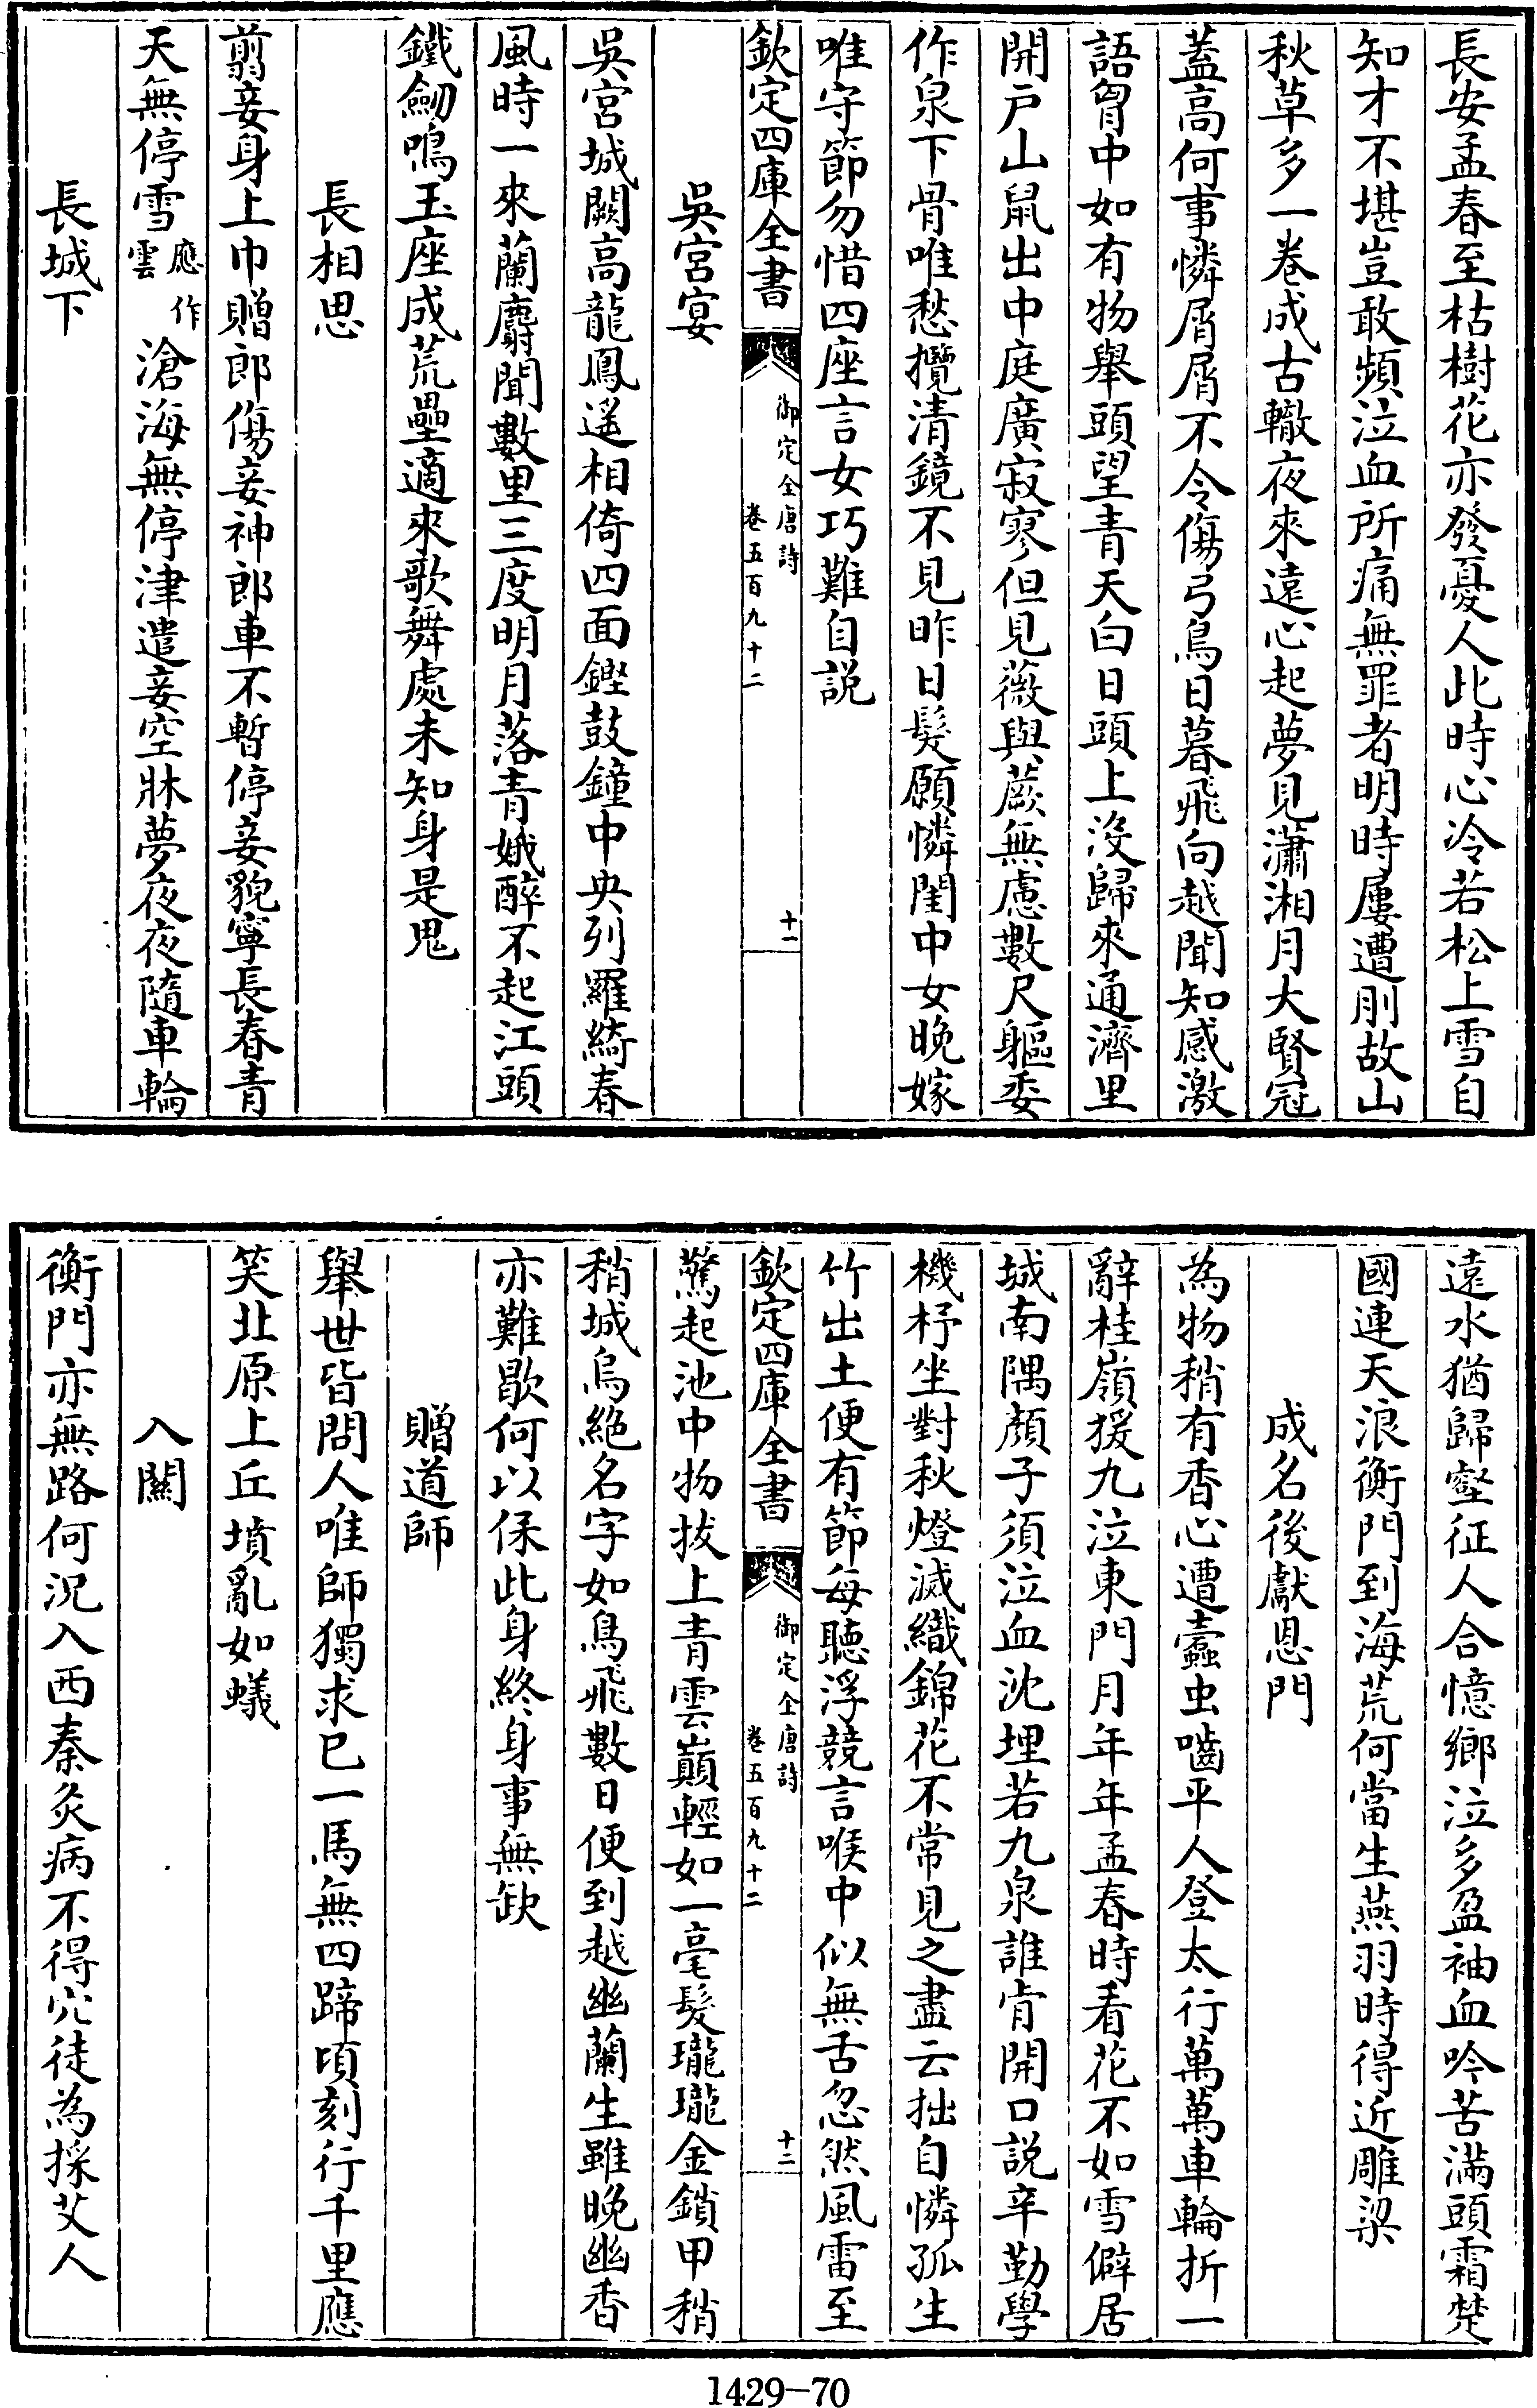 長安孟春至枯樹花亦發憂人此時心冷若松上雪自
知才不堪豈敢頻泣血所痛無罪者明時屢遭刖故山
秋草多一卷成古轍夜來遠心起夢見瀟湘月大賢冠
蓋高何事憐屑屑不令傷弓鳥日暮飛向越聞知感激
語胷中如有物舉頭望青天白日頭上沒歸來通濟里
開戶山鼠出中庭廣寂寥但見薇與蕨無慮數尺軀委
作泉下骨唯愁攬清鏡不見昨日髮願憐閨中女晚嫁
唯守節勿惜四座言女巧難自説
欽定四庫全書
御定全唐詩
卷五百九十二
十一
吳宮宴
吳宮城闕高龍鳳遙相倚四面鏗鼓鐘中央列羅綺春
風時一來蘭麝聞數里三度明月落青娥醉不起江頭
鐵劒鳴玉座成荒壘適來歌舞處未知身是鬼
長相思
剪妾身上巾贈郎傷妾神郎車不暫停妾貌寧長春青
天無停雪應作雲滄海無停津遣妾空牀夢夜夜隨車輪
長城下
遠水猶歸壑征人合憶鄉泣多盈袖血吟苦滿頭霜楚
國連天浪衡門到海荒何當生燕羽時得近雕梁
成名後獻恩門
為物稍有香心遭蠹虫嚙平人登太行萬萬車輪折一
辭桂嶺猨九泣東門月年年孟春時看花不如雪僻居
城南隅顏子須泣血沈埋若九泉誰肯開口説辛勤學
機杼坐對秋燈滅織錦花不常見之盡云拙自憐孤生
竹出土便有節每聽浮競言喉中似無舌忽然風雷至
欽定四庫全書
御定全唐詩
卷五百九十二
十二
驚起池中物拔上青雲巔輕如一毫髮瓏瓏金鎖甲稍
稍城烏絕名字如鳥飛數日便到越幽蘭生雖晚幽香
亦難歇何以保此身終身事無缺
贈道師
舉世皆問人唯師獨求已一馬無四蹄頃刻行千里應
笑北原上丘墳亂如蟻
入關
衡門亦無路何況入西秦灸病不得穴徒為採艾人
1429-70